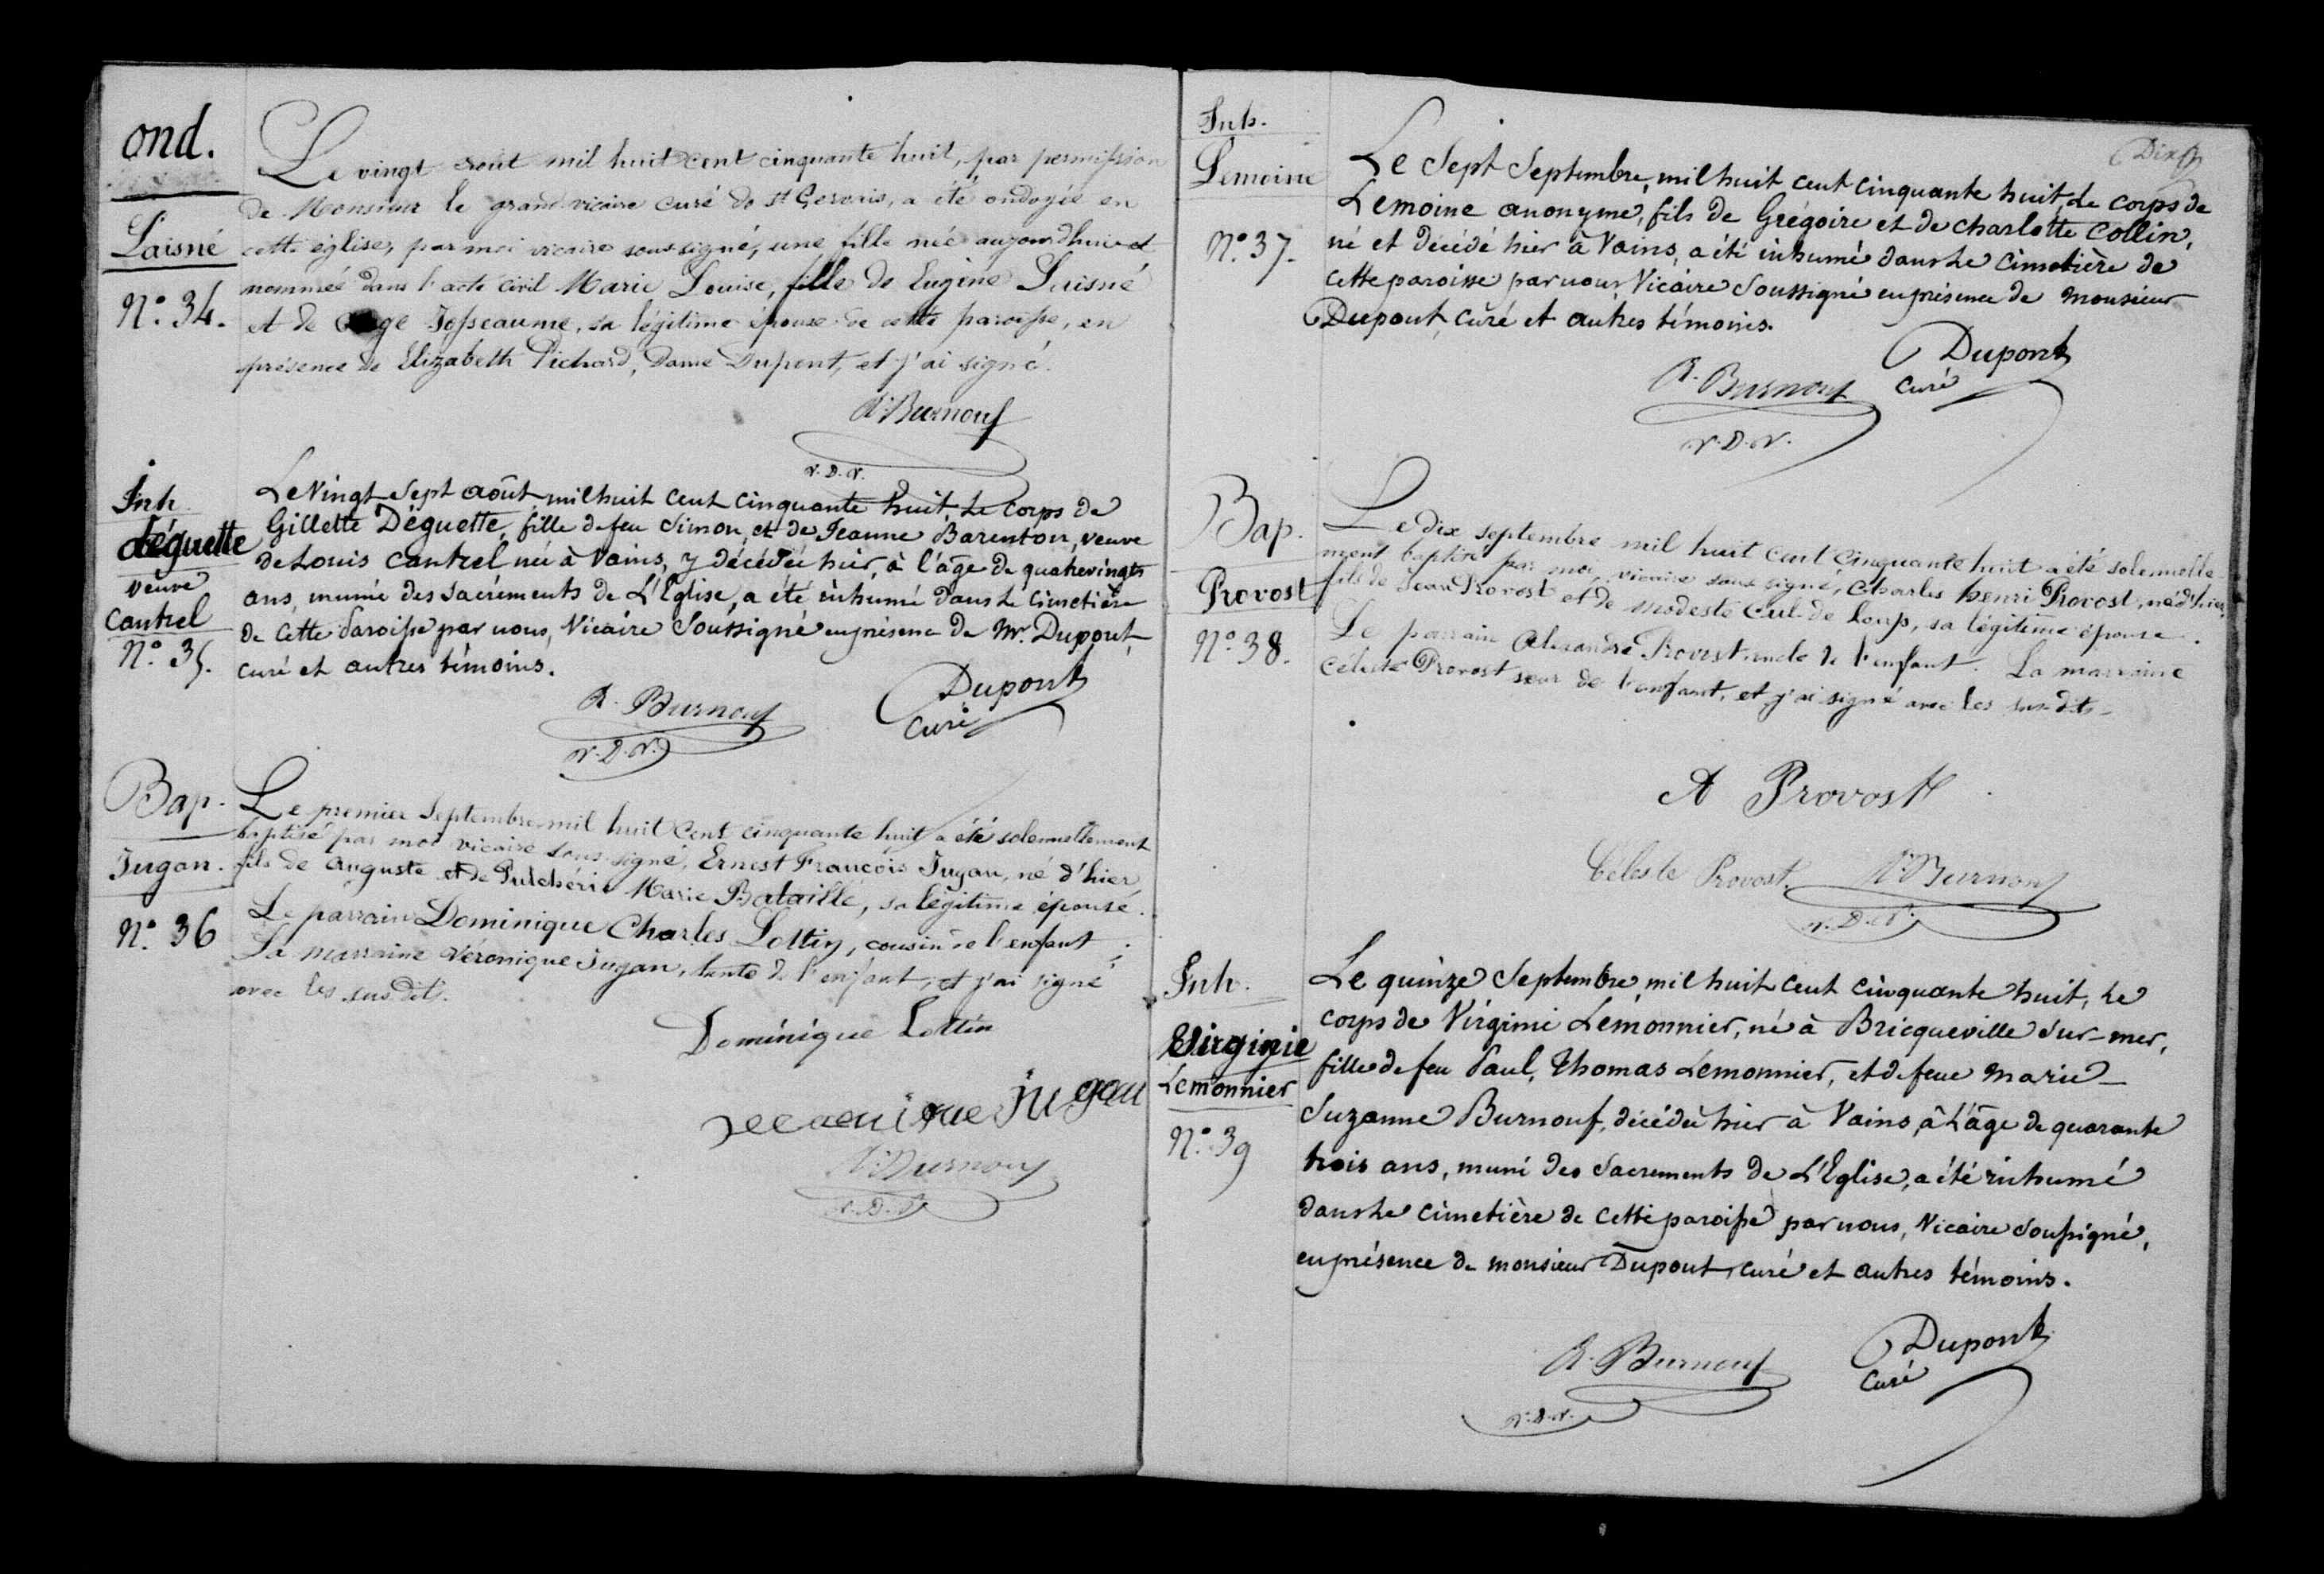 ond.
Laisné
N.° 34.
Le vingt août mil huit cent cinquante huit, par permission
de Monsieur le grand vicaire curé de St Gervais, a été ondoyée en
cette église, par moi vicaire soussigné, une fille née aujourd'hui et
nommée dans l'acte civil Marie Louise, fille de Eugène Laisné
et de Josseaume, sa légitime épouse de cette paroisse, en
présence de Elizabeth Pichard, Dame Dupont, et j'ai signé.
A. Burnouf
v. D. V.
Inh.
déguette
veuve
Cantrel
N.° 35.
Le Vingt-Sept août mil huit cent cinquante huit, le corps de
Gillette Déguette, fille de feu Simon, et de Jeanne Barenton, veuve
de Louis Cantrel née à Vains, y décédée hier, à l'âge de quatrevingts
ans, munie des sacréments de L'Eglise, a été inhumé dans le cimetière
de cette Paroisse par nous, Vicaire Soussigné en présence de Mr. Dupont,
curé et autres témoins.
A. Burnouf
Dupont
curé
v. D. V.
Bap.
Jugan.
N.° 36
Le premier Septembre mil huit cent cinquante huit a été solennellement
baptisé par moi vicaire sous-signé, Ernest François Jugan, né d'hier,
fils de Auguste et de Pulchérie Marie Bataille, sa légitime épouse.
Le parrain Dominique Charles Lottin, cousin de l'enfant;
La marraine Véronique Jugan, tante de l'enfant, et j'ai signé
avec les susdits.
Dominique Lottin
jugan
A. Burnouf
v. D. V.
Inh.
Lemoine
N.° 37.
Le Sept Septembre, mil huit cent cinquante huit, le corps de
Lemoine anonyme, fils de Grégoire et de Charlotte Collin,
né et décédé hier à Vains, a été inhumé dans le cimetière de
cette paroisse par nous Vicaire Soussigné en présence de Monsieur
Dupont, curé et autres témoins.
A. Burnouf
Dupont
curé
v. D. V.
Bap.
Provost
N.° 38.
Le dix septembre mil huit cent cinquante huit a été solennelle-
ment baptisé par moi, vicaire sous signé, Charles henri Provost, né d'hier,
fils de Jean Provost et de Modeste Cul-de-loup, sa légitime épouse.
Le parrain Alexandre Provost, oncle de l'enfant. La marraine
Céleste Provost sœur de l'enfant, et j'ai signé avec les sus-dits.
A Provost
Céleste Provost. A. Burnouf
v. D. V.
Inh.
Virginie
Lemonnier
N.° 39
Le quinze Septembre, mil huit cent cinquante huit, le
corps de Virginie Lemonnier, né à Bricqueville sur-mer,
fille de feu Paul, Thomas Lemonnier, et de feue Marie-
Suzanne Burnouf, décédée hier à Vains, à l'âge de quarante
trois ans, muni des Sacrements de L'Eglise, a été inhumé
dans le cimetière de cette paroisse par nous, Vicaire Soussigné,
en présence de monsieur Dupont, curé et autres témoins.
A. Burnouf
Dupont
Curé
v. D. V.